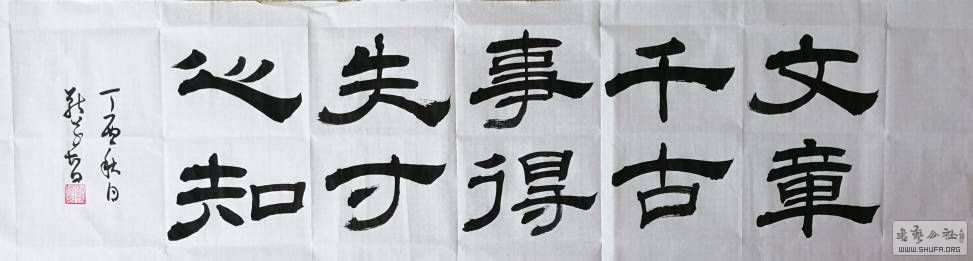 文章
千古
事得
失寸
心知
丁酉秋日
书艺公社
WWW.SHUFA.ORG